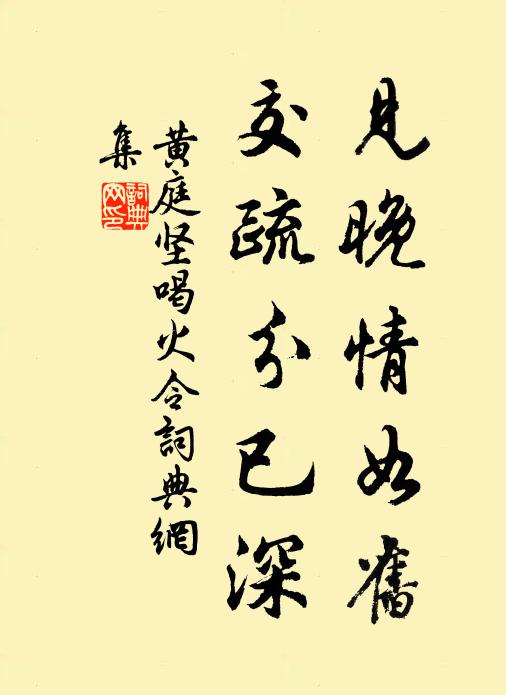 見晚情如舊
交疏分已深
黄庭坚喝火令詞典網
集
詞典網印